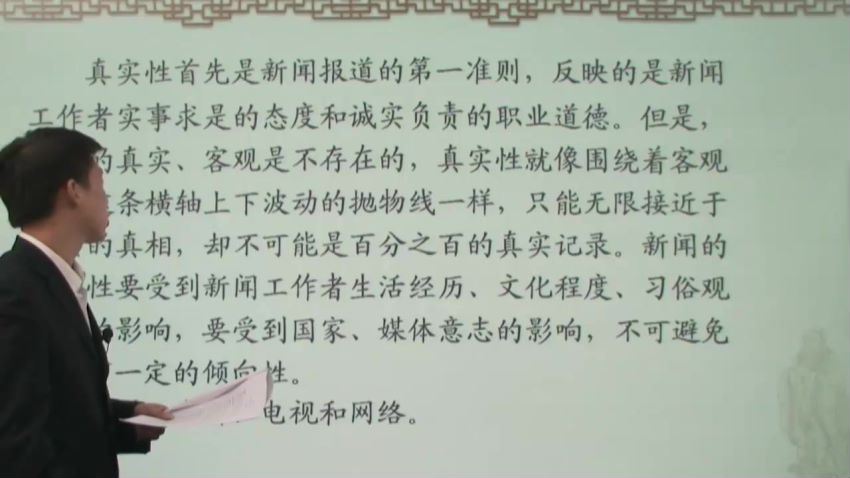 真实性首先是新闻报道的第一准则，反映的是新闻
工作者实事求是的态度和诚实负责的职业道德。但是，
的真实、客观是不存在的，真实性就像围绕着客观
条横轴上下波动的抛物线一样，只能无限接近于
的真相，却不可能是百分之百的真实记录。新闻的
性要受到新闻工作者生活经历、文化程度、习俗观
的影响，要受到国家、媒体意志的影响，不可避免
一定的倾向性。
电视和网络。